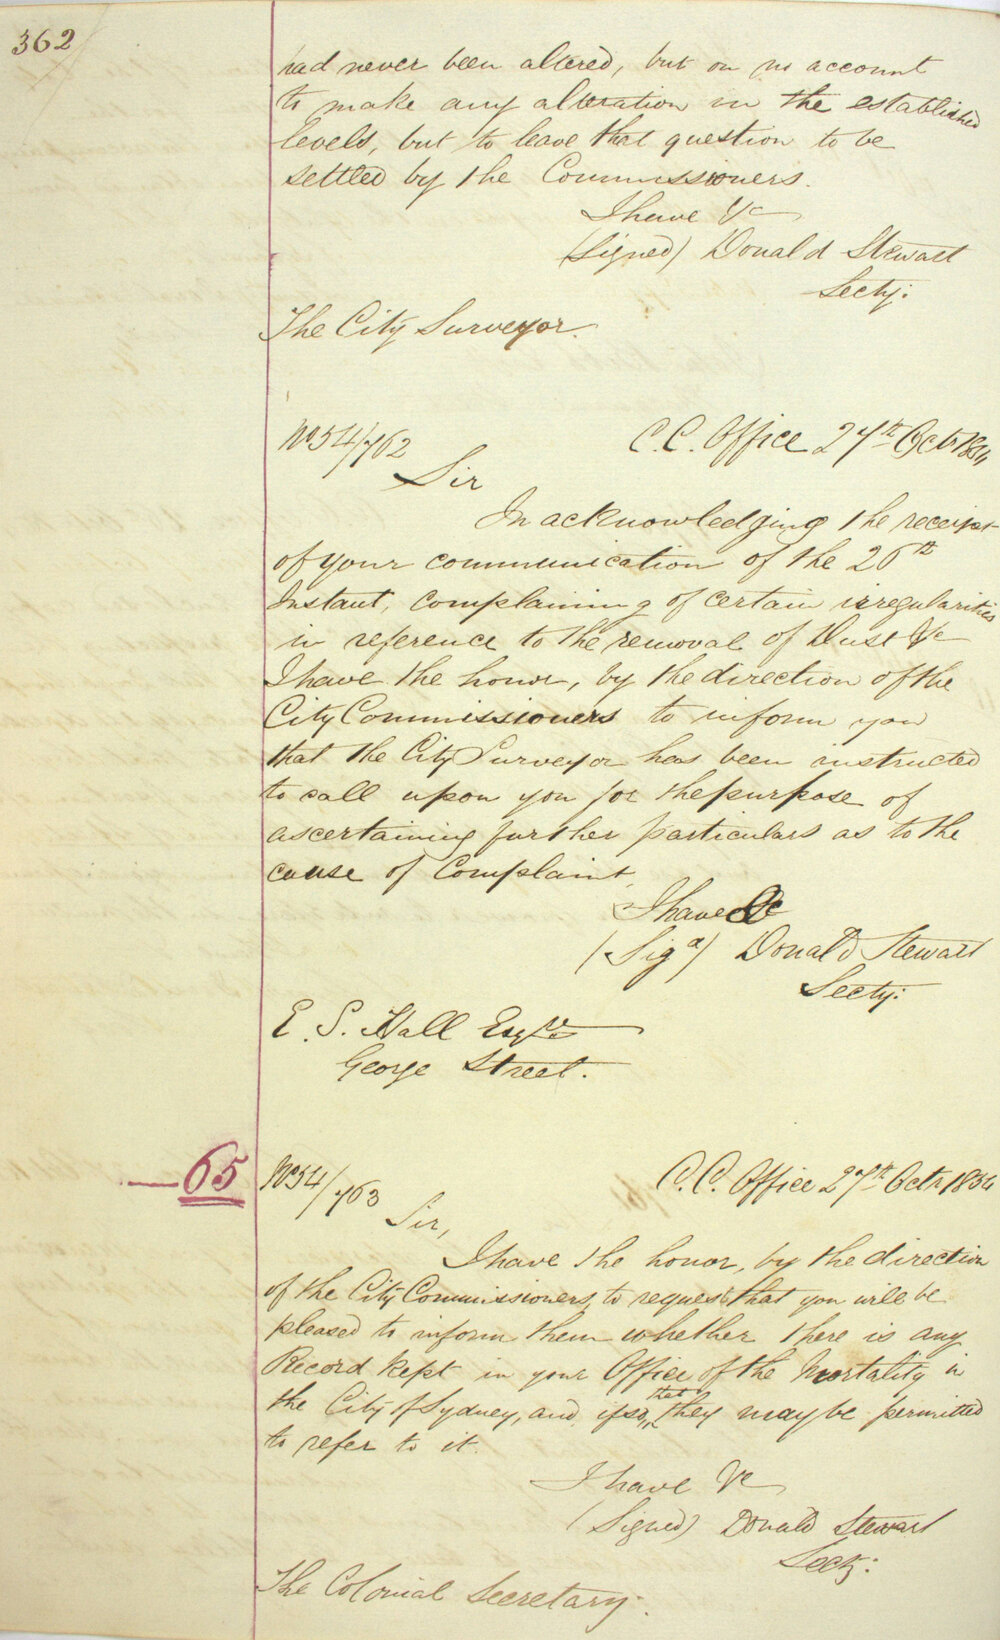 362
had never been altered, but on no account
to make any alteration in the established
levels, but to leave that question to be
settled by the Commissioners.
I have &c
(Signed) Donald Stewart
Secty:
The City Surveyor.
No 54/762
C.C. Office 27th Octr 1854
Sir
In acknowledging the receipt
of your communication of the 26th
Instant, complaining of certain irregularities
in reference to the removal of Dust &c
I have the honor, by the direction of the
City Commissioners to inform you
that the City Surveyor has been instructed
to call upon you for the purpose of
ascertaining further particulars as to the
cause of Complaint.
I have &c
(Sigd) Donald Stewart
Secty:
E. S. Hall Esqre
George Street.
65
No 54/763
C.C. Office 27th Octr 1854
Sir,
I have the honor, by the direction
of the City Commissioners, to request that you will be
pleased to inform them whether there is any
Record kept in your Office of the Mortality in
the City of Sydney, and, if so, that they may be permitted
to refer to it.
I have &c
(Signed) Donald Stewart
Secty:
The Colonial Secretary.